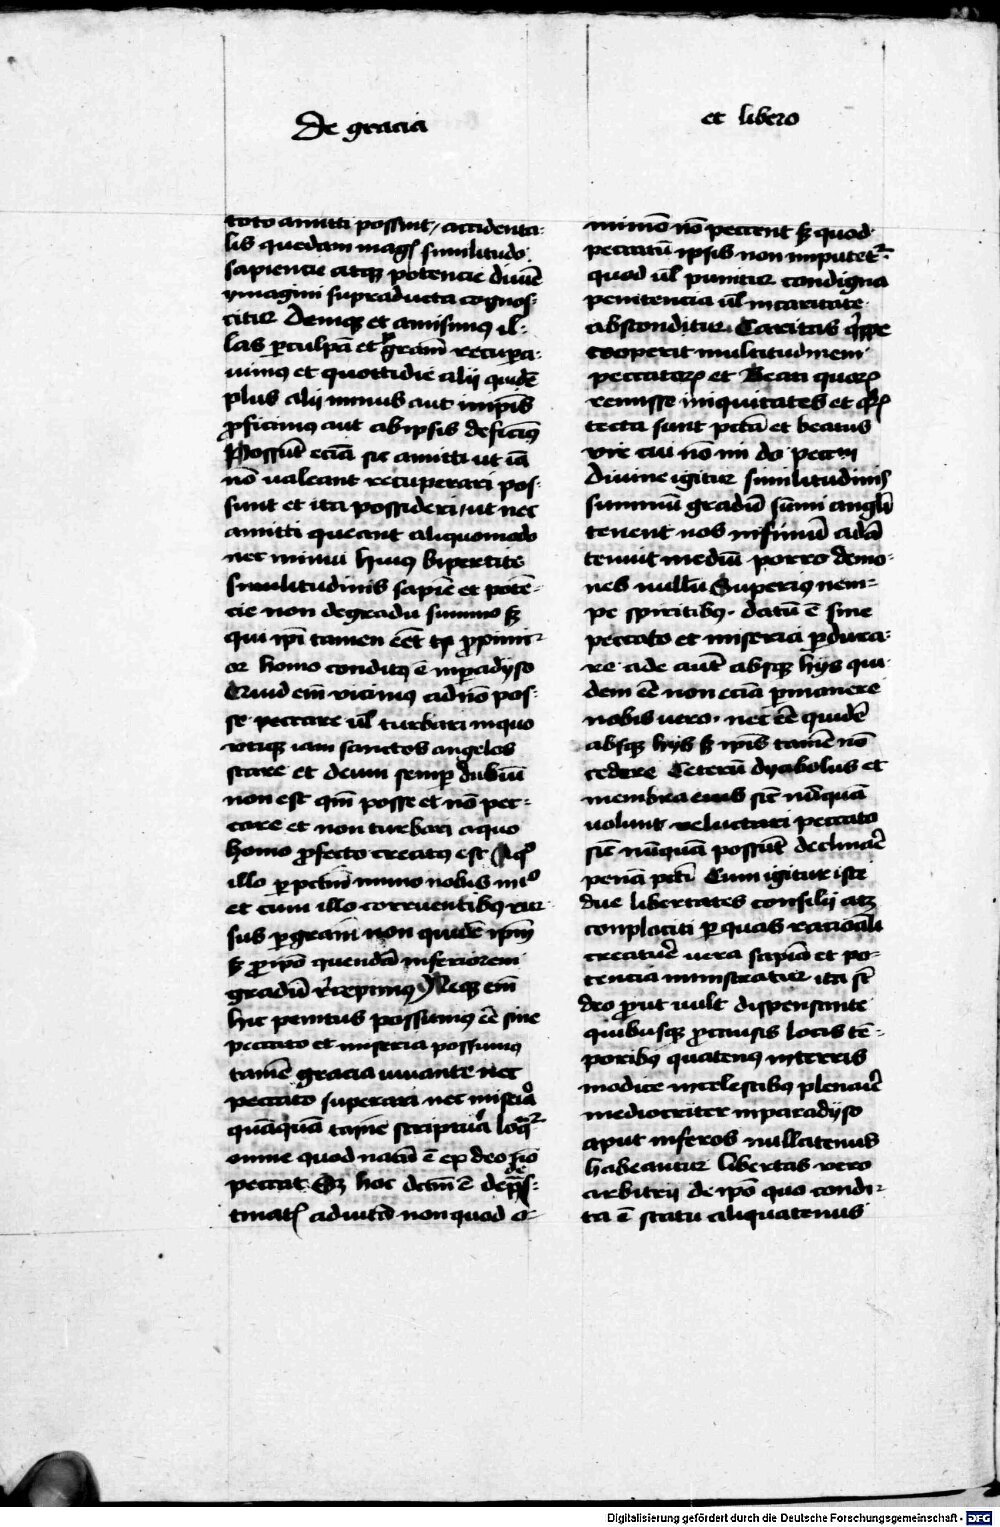 De gracia
et libero
toto amitti possunt, accidenta-
lis quedam magis similitudo
sapiencie atque potencie divine
ymagini supraducta cognos-
citur Denique et amisimus il-
las per culpam et per graciam recupera-
vimus et quottidie alii quidem
plus alii minus aut in ipsis
proficimus aut ab ipsis deficimus
Possunt eciam sic amitti ut iam
non valeant recuperari pos-
sunt et ita possideri, ut nec
amitti queant aliquomodo
nec minui huius bipertite
similitudinis sapiencie et poten-
cie non de gradu summo sed
qui ipsi tamen esset proximi-
or homo conditus est in paradyso
Quid enim vicinius ad non pos-
se peccare vel turbari in quo
utique iam sanctos angelos
stare et deum semper dubium
non est quam posse et non pec-
care et non turbari a quo
homo profecto creatus est A quo
illo per peccatum immo nobis in illo
et cum illo corruentibus rur-
sus per graciam non quidem ipsum
sed pro ipso quendam inferiorem
gradum recepimus Neque enim
hic penitus possumus esse sine
peccato et miseria possumus
tamen gracia iuvante nec
peccato superari nec miseria
quamquam tamen scriptura loquitur
omne quod natum est ex deo non
peccat Sed hoc dictum est de predes-
tinatis ad vitam non quod o-
mnino non peccent sed quod
peccatum ipsis non imputetur
quod vel punitur condigna
penitencia vel in caritate
absconditur. Caritas quippe
cooperit multitudinem
peccatorum et Beati quorum
remisse iniquitates et quorum
tecta sunt peccata et beatus
vir cui non im do peccatum
Divine igitur similitudinis
summum gradum summi angeli
tenent nos infimum adam
tenuit medium porro demo-
nes nullum Supernis nem-
pe spiritibus datum est sine
peccato et miseria perdura-
re ade autem absque hiis qui-
dem esse non eciam permanere
nobis vero nec esse quidem
absque hiis sed ipsis tamen non
cedere Ceterum dyabolus et
membra eius sicut nunquam
volunt reluctari peccato
sic nunquam possunt declinare
penam peccati Cum igitur iste
due libertates consilii atque
conplaciti per quas racionali
creature vera sapiencia et po-
tencia ministratur ita sicut
deo prout vult dispensante
quibusque pro causis locis tem-
poribus quatenus in terris
modice in celestibus plenarie
mediocriter in paradyso
aput inferos nullatenus
habeantur libertas vero
arbitrii de ipso quo condi-
ta est statu aliquatenus